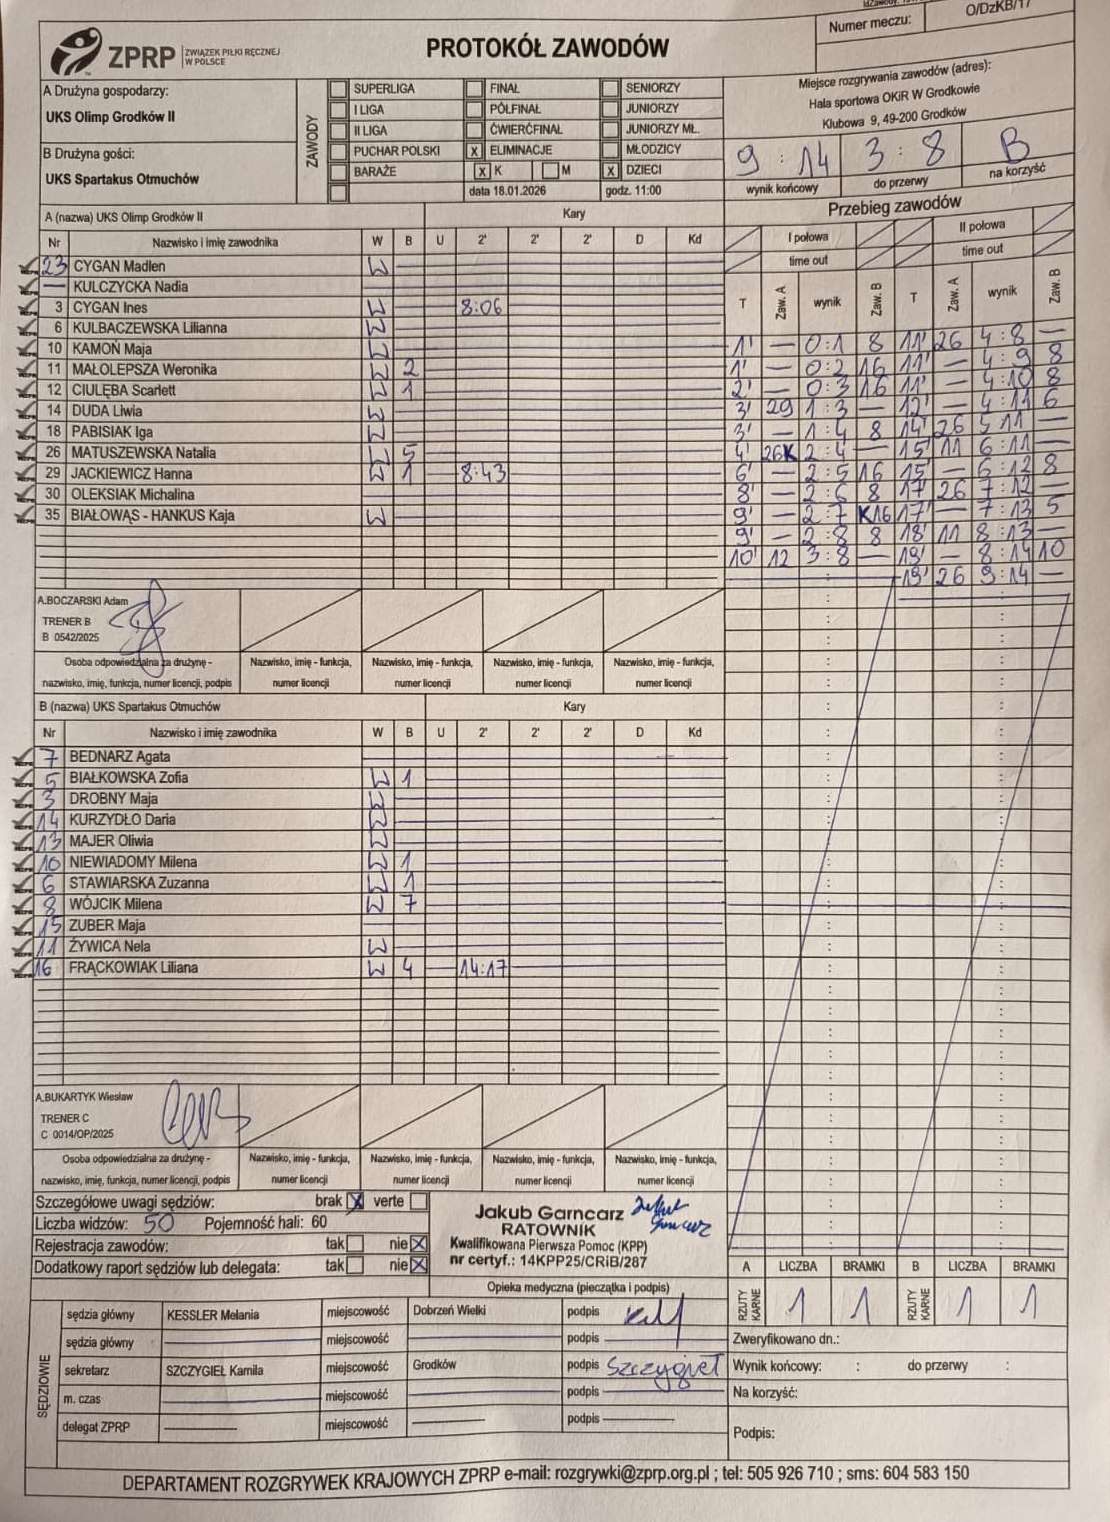 ZPRP ZWIĄZEK PIŁKI RĘCZNEJ W POLSCE
PROTOKÓŁ ZAWODÓW
Numer meczu: O/DzKB/17
A Drużyna gospodarzy:
UKS Olimp Grodków II
B Drużyna gości:
UKS Spartakus Otmuchów
ZAWODY
SUPERLIGA FINAŁ SENIORZY
I LIGA PÓŁFINAŁ JUNIORZY
II LIGA ĆWIERĆFINAŁ JUNIORZY MŁ.
PUCHAR POLSKI X ELIMINACJE MŁODZICY
BARAŻE X K M X DZIECI
data 18.01.2026 godz. 11:00
Miejsce rozgrywania zawodów (adres):
Hala sportowa OKiR W Grodkowie
Klubowa 9, 49-200 Grodków
9 : 14 3 : 8 B
wynik końcowy do przerwy na korzyść
A (nazwa) UKS Olimp Grodków II Kary
Nr Nazwisko i imię zawodnika W B U 2' 2' 2' D Kd
23 CYGAN Madlen W
— KULCZYCKA Nadia
3 CYGAN Ines W 8:06
6 KULBACZEWSKA Lilianna W
10 KAMOŃ Maja W
11 MAŁOLEPSZA Weronika W 2
12 CIULĘBA Scarlett W 1
14 DUDA Liwia W
18 PABISIAK Iga W
26 MATUSZEWSKA Natalia W 5
29 JACKIEWICZ Hanna W 1 8:43
30 OLEKSIAK Michalina
35 BIAŁOWĄS - HANKUS Kaja W
A.BOCZARSKI Adam
TRENER B
B 0542/2025
Osoba odpowiedzialna za drużynę - nazwisko, imię, funkcja, numer licencji, podpis
Nazwisko, imię - funkcja, numer licencji
Nazwisko, imię - funkcja, numer licencji
Nazwisko, imię - funkcja, numer licencji
Nazwisko, imię - funkcja, numer licencji
B (nazwa) UKS Spartakus Otmuchów Kary
Nr Nazwisko i imię zawodnika W B U 2' 2' 2' D Kd
7 BEDNARZ Agata
5 BIAŁKOWSKA Zofia W 1
3 DROBNY Maja W
14 KURZYDŁO Daria W
13 MAJER Oliwia W
10 NIEWIADOMY Milena W 1
6 STAWIARSKA Zuzanna W 1
8 WÓJCIK Milena W 7
15 ZUBER Maja
11 ŻYWICA Nela W
16 FRĄCKOWIAK Liliana W 4 14:17
A.BUKARTYK Wiesław
TRENER C
C 0014/OP/2025
Osoba odpowiedzialna za drużynę - nazwisko, imię, funkcja, numer licencji, podpis
Nazwisko, imię - funkcja, numer licencji
Nazwisko, imię - funkcja, numer licencji
Nazwisko, imię - funkcja, numer licencji
Nazwisko, imię - funkcja, numer licencji
Przebieg zawodów
I połowa II połowa
time out time out
T Zaw. A wynik Zaw. B T Zaw. A wynik Zaw. B
1' — 0:1 8 11' 26 4:8 —
1' — 0:2 16 11' — 4:9 8
2' — 0:3 16 11' — 4:10 8
3' 29 1:3 — 12' — 4:11 6
3' — 1:4 8 14' 26 5:11 —
4' 26K 2:4 — 15' 11 6:11 —
6' — 2:5 16 15' — 6:12 8
8' — 2:6 8 17' 26 7:12 —
9' — 2:7 K16 17' — 7:13 5
9' — 2:8 8 18' 11 8:13 —
10' 12 3:8 — 19' — 8:14 10
19' 26 9:14 —
Szczegółowe uwagi sędziów: brak X verte
Liczba widzów: 50 Pojemność hali: 60
Rejestracja zawodów: tak nie X
Dodatkowy raport sędziów lub delegata: tak nie X
Jakub Garncarz
RATOWNIK
Kwalifikowana Pierwsza Pomoc (KPP)
nr certyf.: 14KPP25/CRiB/287
Opieka medyczna (pieczątka i podpis)
A LICZBA BRAMKI B LICZBA BRAMKI
RZUTY KARNE 1 1 RZUTY KARNE 1 1
SĘDZIOWIE
sędzia główny KESSLER Melania miejscowość Dobrzeń Wielki podpis
sędzia główny miejscowość podpis
sekretarz SZCZYGIEŁ Kamila miejscowość Grodków podpis Szczygieł
m. czas miejscowość podpis
delegat ZPRP miejscowość podpis
Zweryfikowano dn.:
Wynik końcowy: : do przerwy :
Na korzyść:
Podpis:
DEPARTAMENT ROZGRYWEK KRAJOWYCH ZPRP e-mail: rozgrywki@zprp.org.pl ; tel: 505 926 710 ; sms: 604 583 150